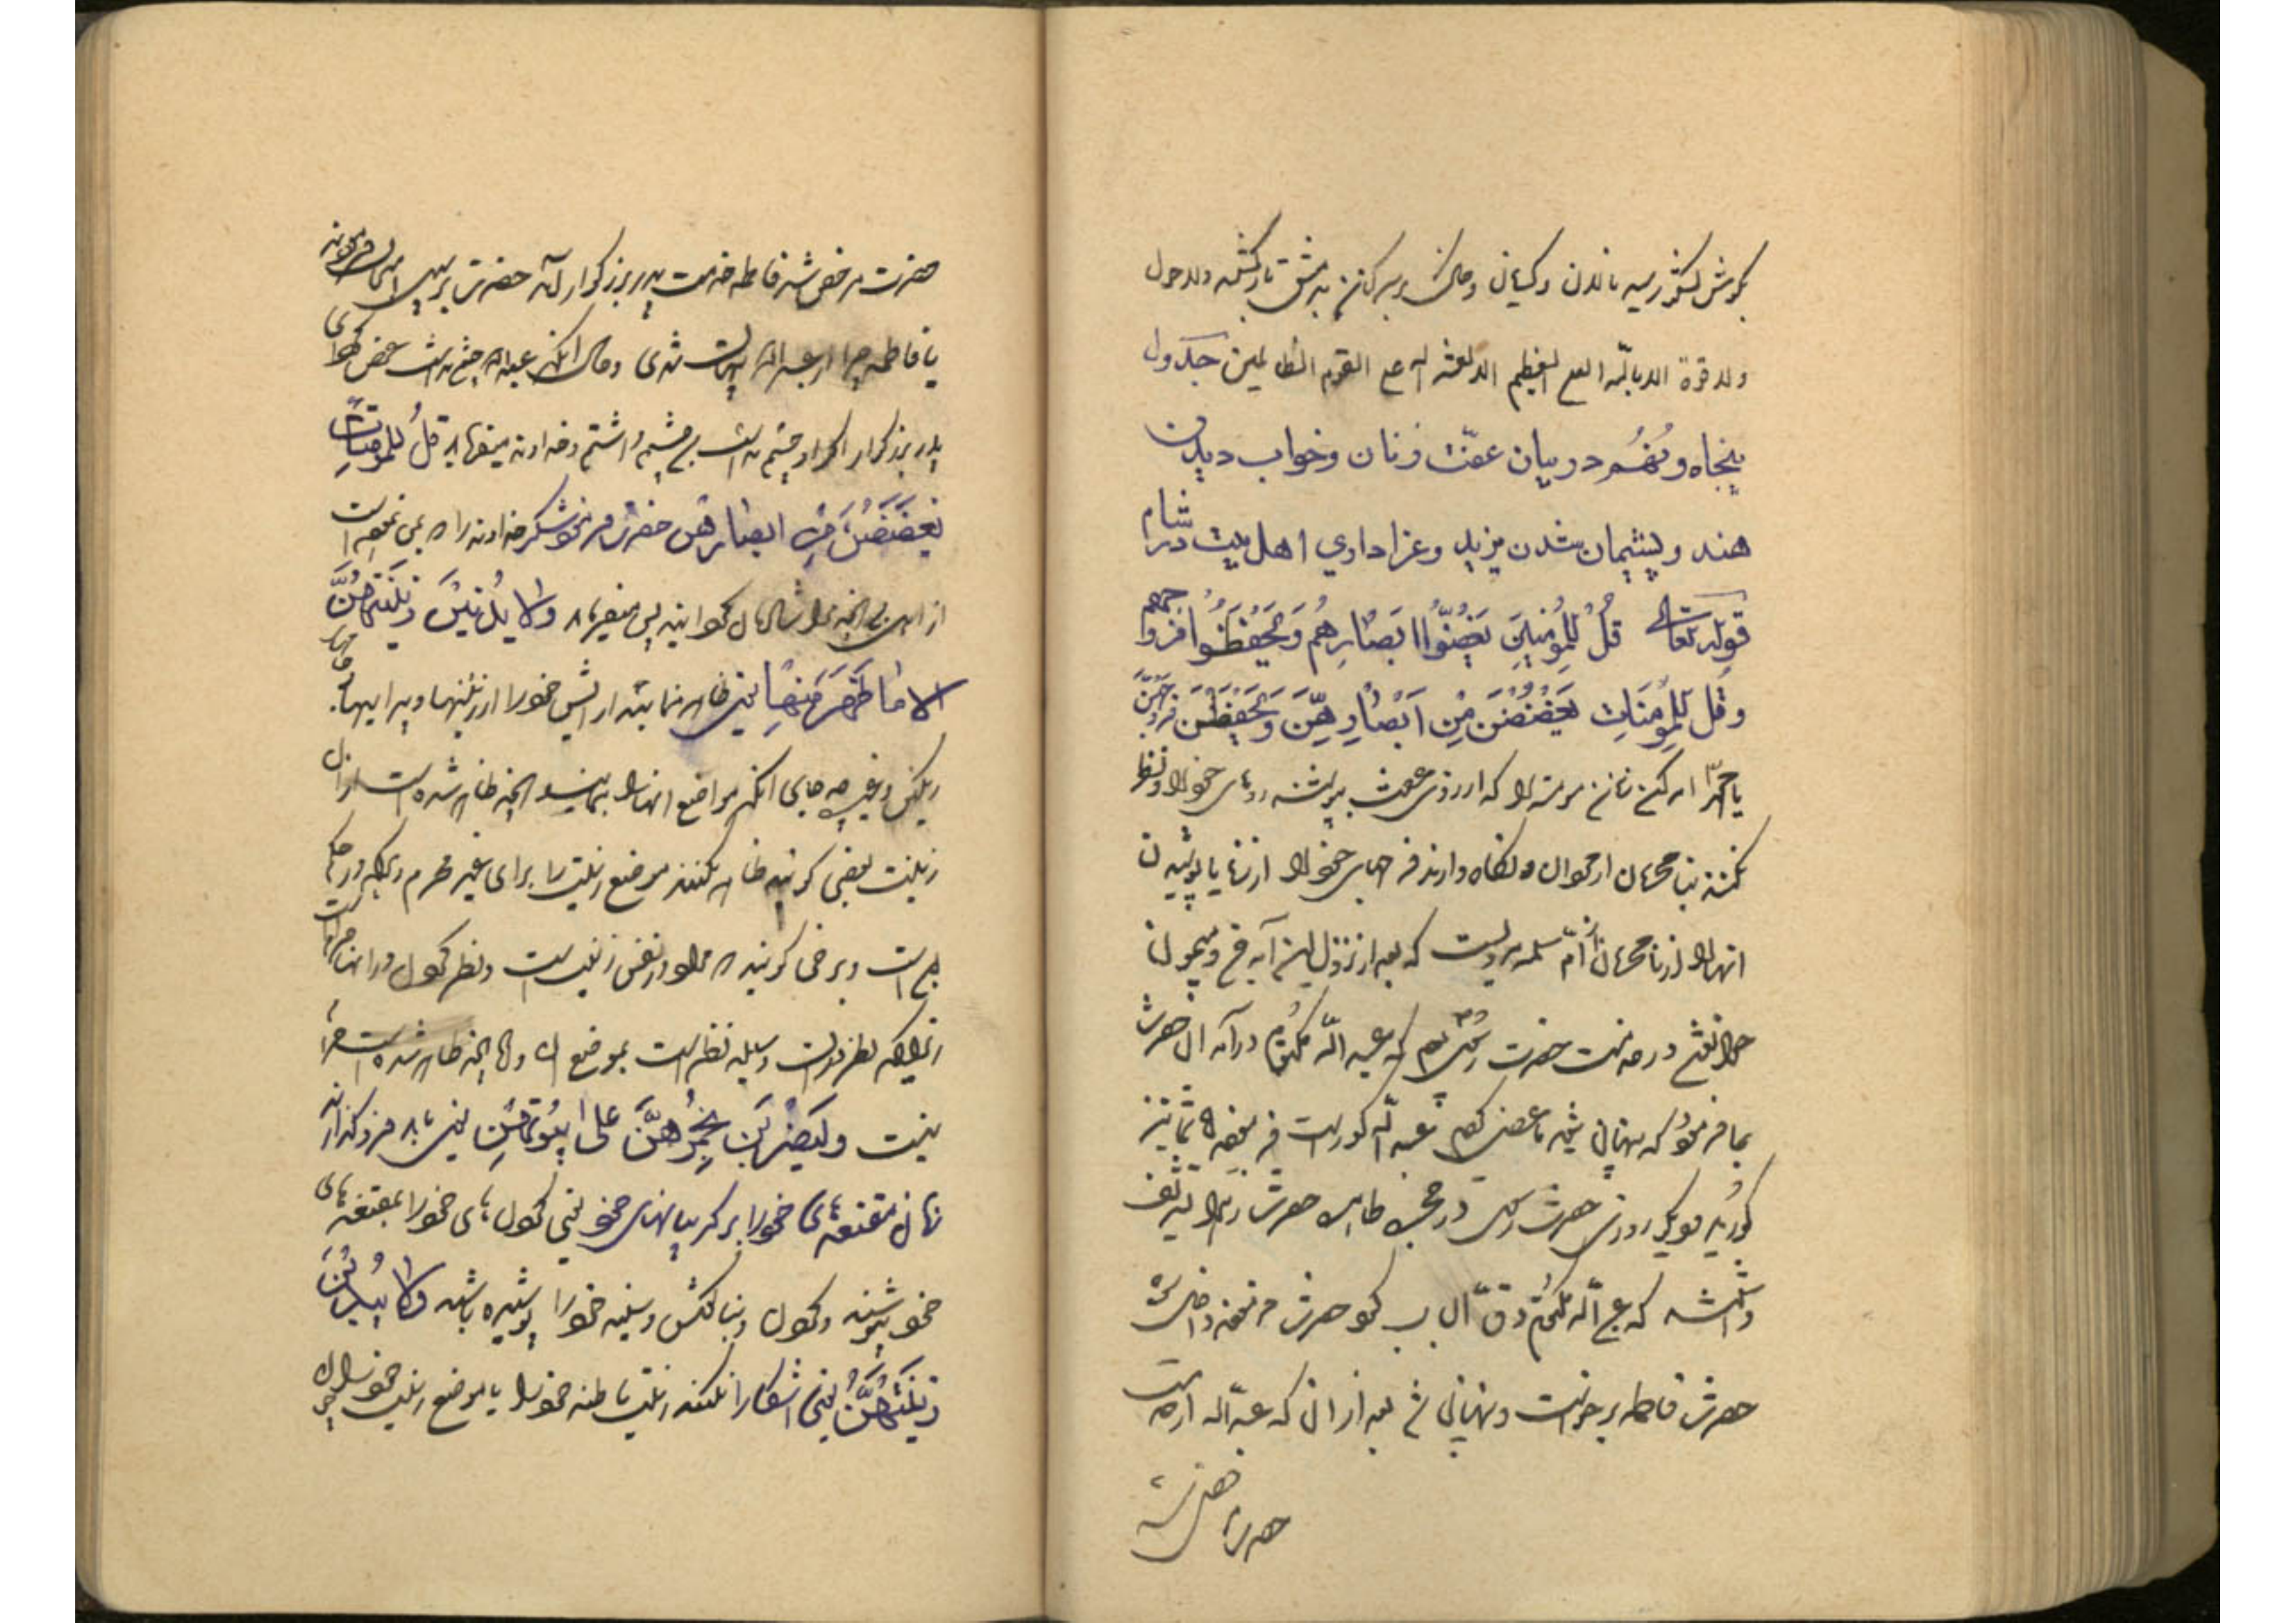 بگوش لشکر رسید نالان و گریان و خاک بر سر کنان به دمشق بازگشتند ولا حول
ولا قوة الا بالله العلي العظيم الا لعنة الله على القوم الظالمين جدول
پنجاه و نهم در بیان عفّت زنان و خواب دیدن
هند و پشیمان شدن یزید و عزاداری اهل بیت در شام
قوله تعالی قُل لِلمُؤمِنینَ یَغُضّوُا اَبصارِهُم وَیَحفَظُوا فُرُوجَهُم
وَقُل لِلمُؤمِنَاتِ یَغضُضنَ مِن اَبصارِهِنَّ وَیَحفَظنَ فُرُوجَهُنَّ
یا محمّد امر کن زنان مؤمنه را که از روی عفت بپوشند روهای خود را و نظر
نکنند بنامحرمان از مردان و نگاه دارند فرجهای خود را از زنا یا پوشیدن
انها را از نامحرمان از امّ سلمه مرویست که بعد از نزول این آیه من و میمونه
در خدمت حضرت رسول بودیم که عبد الله مکتوم درآمد ان حضرت
بما فرمود که پنهان شوید ما عرض کردیم عبد الله کور است فرمود شما نیز
کورید مرویست روزی حضرت رسول در حجره طاهره حضرت زهرا تشریف
داشتند که عبد الله مکتوم دقّ الباب کرد حضرت رخصت داخل شد
حضرت فاطمه برخواست و پنهان شد بعد از ان که عبد الله از خدمت
حضرت مرخص شد
حضرت مرخص شد فاطمه خدمت پدر بزرگوار آمد حضرت پرسید امتحان فرمودند
یا فاطمه چرا از عبد الله پنهان شدی و حال انکه عبد الله چشم نداشت عرض کرد ای
پدر بزرگوار اگر او چشم نداشت من چشم داشتم و خداوند میفرماید قُل لِلمُؤمِنَاتِ
یَغضُضنَ مِن ابصارهن حضرت فرمود شکر خداوند را که بمن نموده است
از اهل بیت انچه مرا شادمان گرداند پس میفرماید ولا یُبدینَ زینَتَهُنَّ
الا ما ظَهَرَ مِنها یعنی ظاهر ننمایند ارایش خود را از زینتها و پیرایها
رنگین و غیره چه جای انکه مواضع انها را بنمایند انچه ظاهر شده است از ان
زینت بعضی گویند ظاهر نکنند موضع زینت را برای غیر محرم
است و برخی گویند که مراد از نفس زینت است و نظر کردن در انها حرام است
زیراکه نظر در ان وسیله نظر است بموضع ان والا انچه ظاهر شده است حرام
نیست وَلیَضرِبنَ بِخُمُرِهِنَّ علی جُیُوبِهِنَّ یعنی باید فرو گذارند
زنان مقنعه‌های خود را بر گریبانهای خود یعنی گردن‌های خود را بمقنعه‌های
خود بپوشند و گردن و بناگوش و سینه خود را پوشیده باشند ولا یُبدینَ
زینَتَهُنَّ یعنی اشکارا نکنند زینت باطنه خود را یا موضع زینت خود را